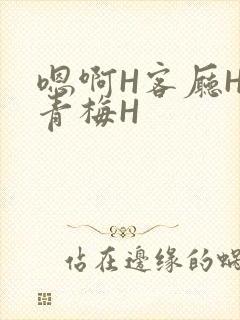 嗯啊H客厅H
青梅H
估在边缘的蜗